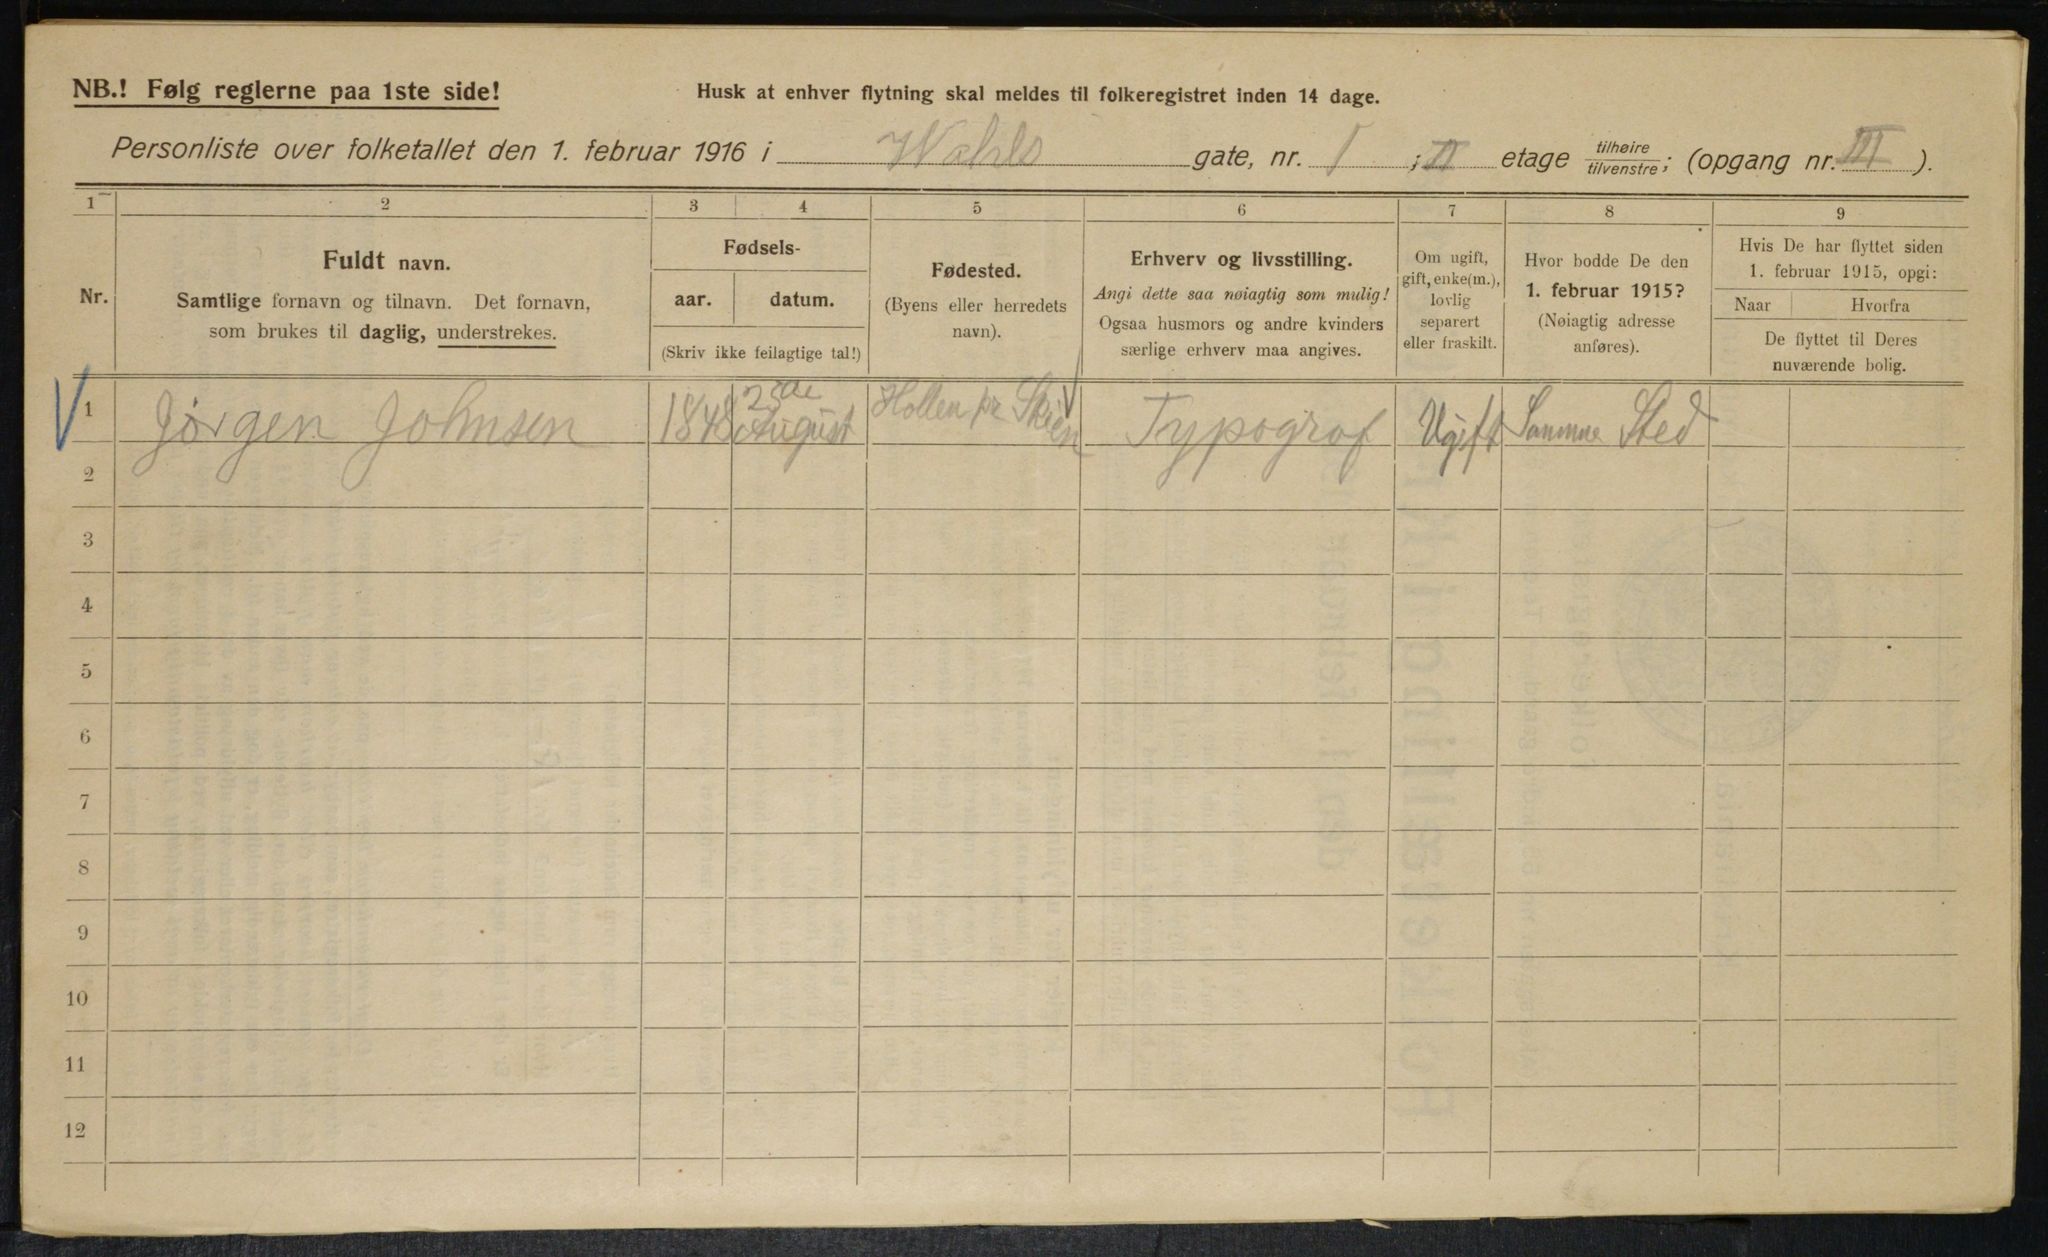 NB.! Følg reglerne paa 1ste side!
Husk at enhver flytning skal meldes til folkeregistret inden 14 dage.
Personliste over folketallet den 1. februar 1916 i Wahls gate, nr. 1 ; II etage tilhøire / tilvenstre ; (opgang nr. III ).
1 2 3 4 5 6 7 8 9
Nr.
Fuldt navn.
Samtlige fornavn og tilnavn. Det fornavn,
som brukes til daglig, understrekes.
Fødsels-
aar. datum.
(Skriv ikke feilagtige tal!)
Fødested.
(Byens eller herredets
navn).
Erhverv og livsstilling.
Angi dette saa nøiagtig som mulig!
Ogsaa husmors og andre kvinders
særlige erhverv maa angives.
Om ugift,
gift, enke(m.),
lovlig
separert
eller fraskilt.
Hvor bodde De den
1. februar 1915?
(Nøiagtig adresse
anføres).
Hvis De har flyttet siden
1. februar 1915, opgi:
Naar Hvorfra
De flyttet til Deres
nuværende bolig.
1 Jørgen Johnsen 1848 23de August Hollen pr Skien Typograf Ugift Samme Sted
2
3
4
5
6
7
8
9
10
11
12